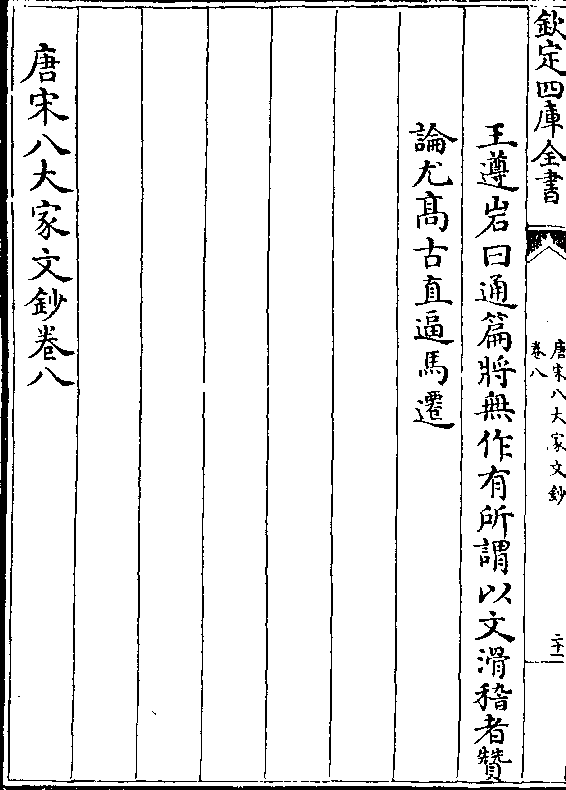 欽定四庫全書
唐宋八大家文鈔
卷八
二十一
王遵岩曰通篇將無作有所謂以文滑稽者贊
論尤髙古直逼馬遷
唐宋八大家文鈔卷八